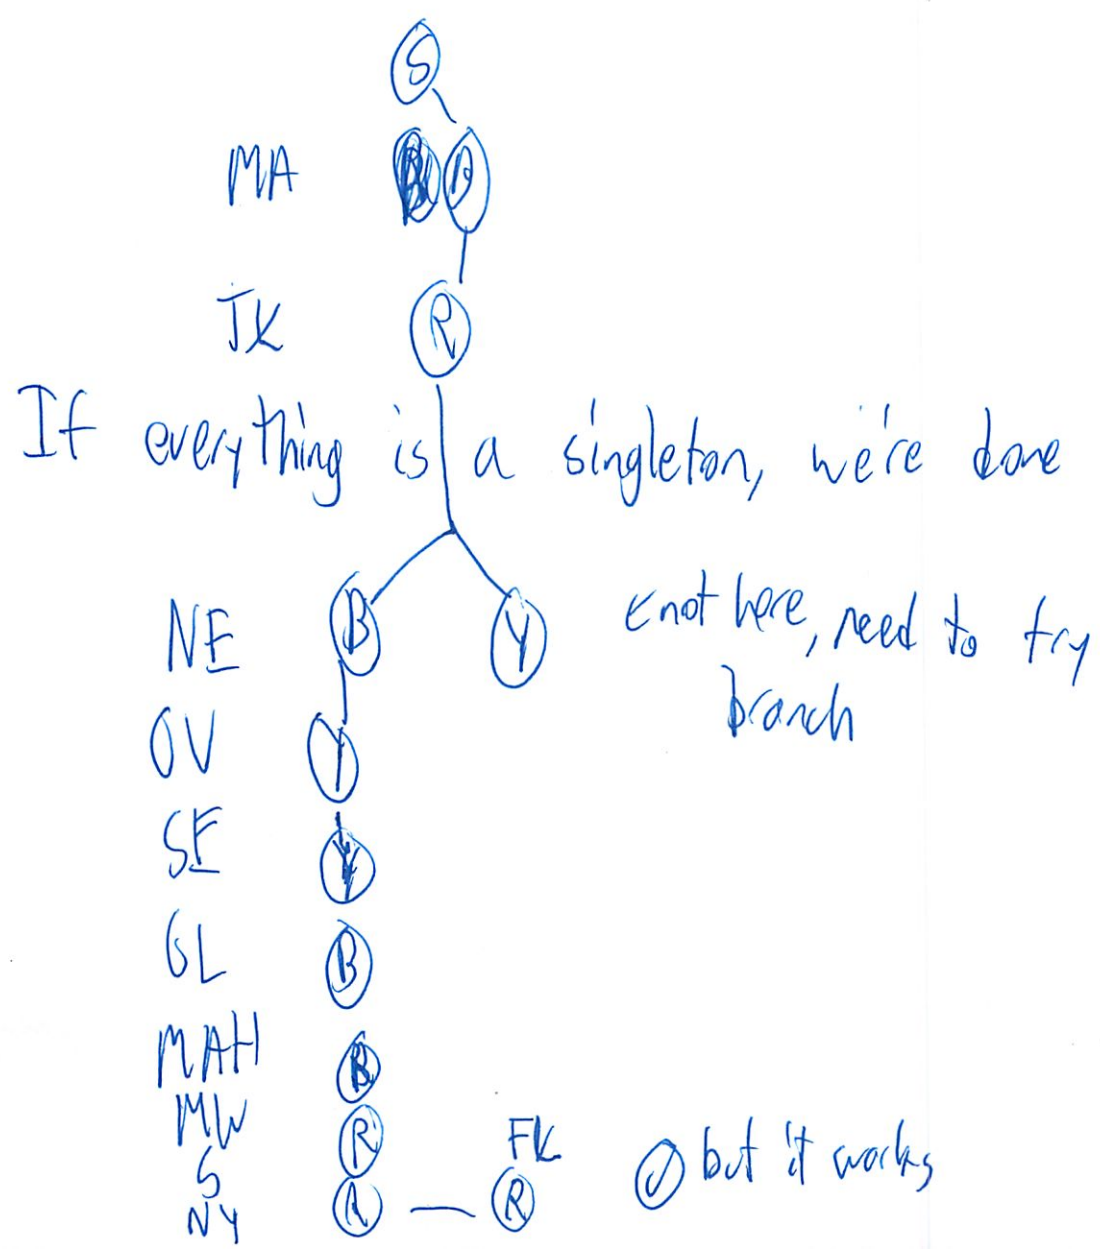 S
MA B
JK R
If everything is a singleton, we're done
NE B Y ←not here, need to try
branch
OV Y
SE Y
GL B
MAH B
MW R FK
S
NY R — R ✓ but it works